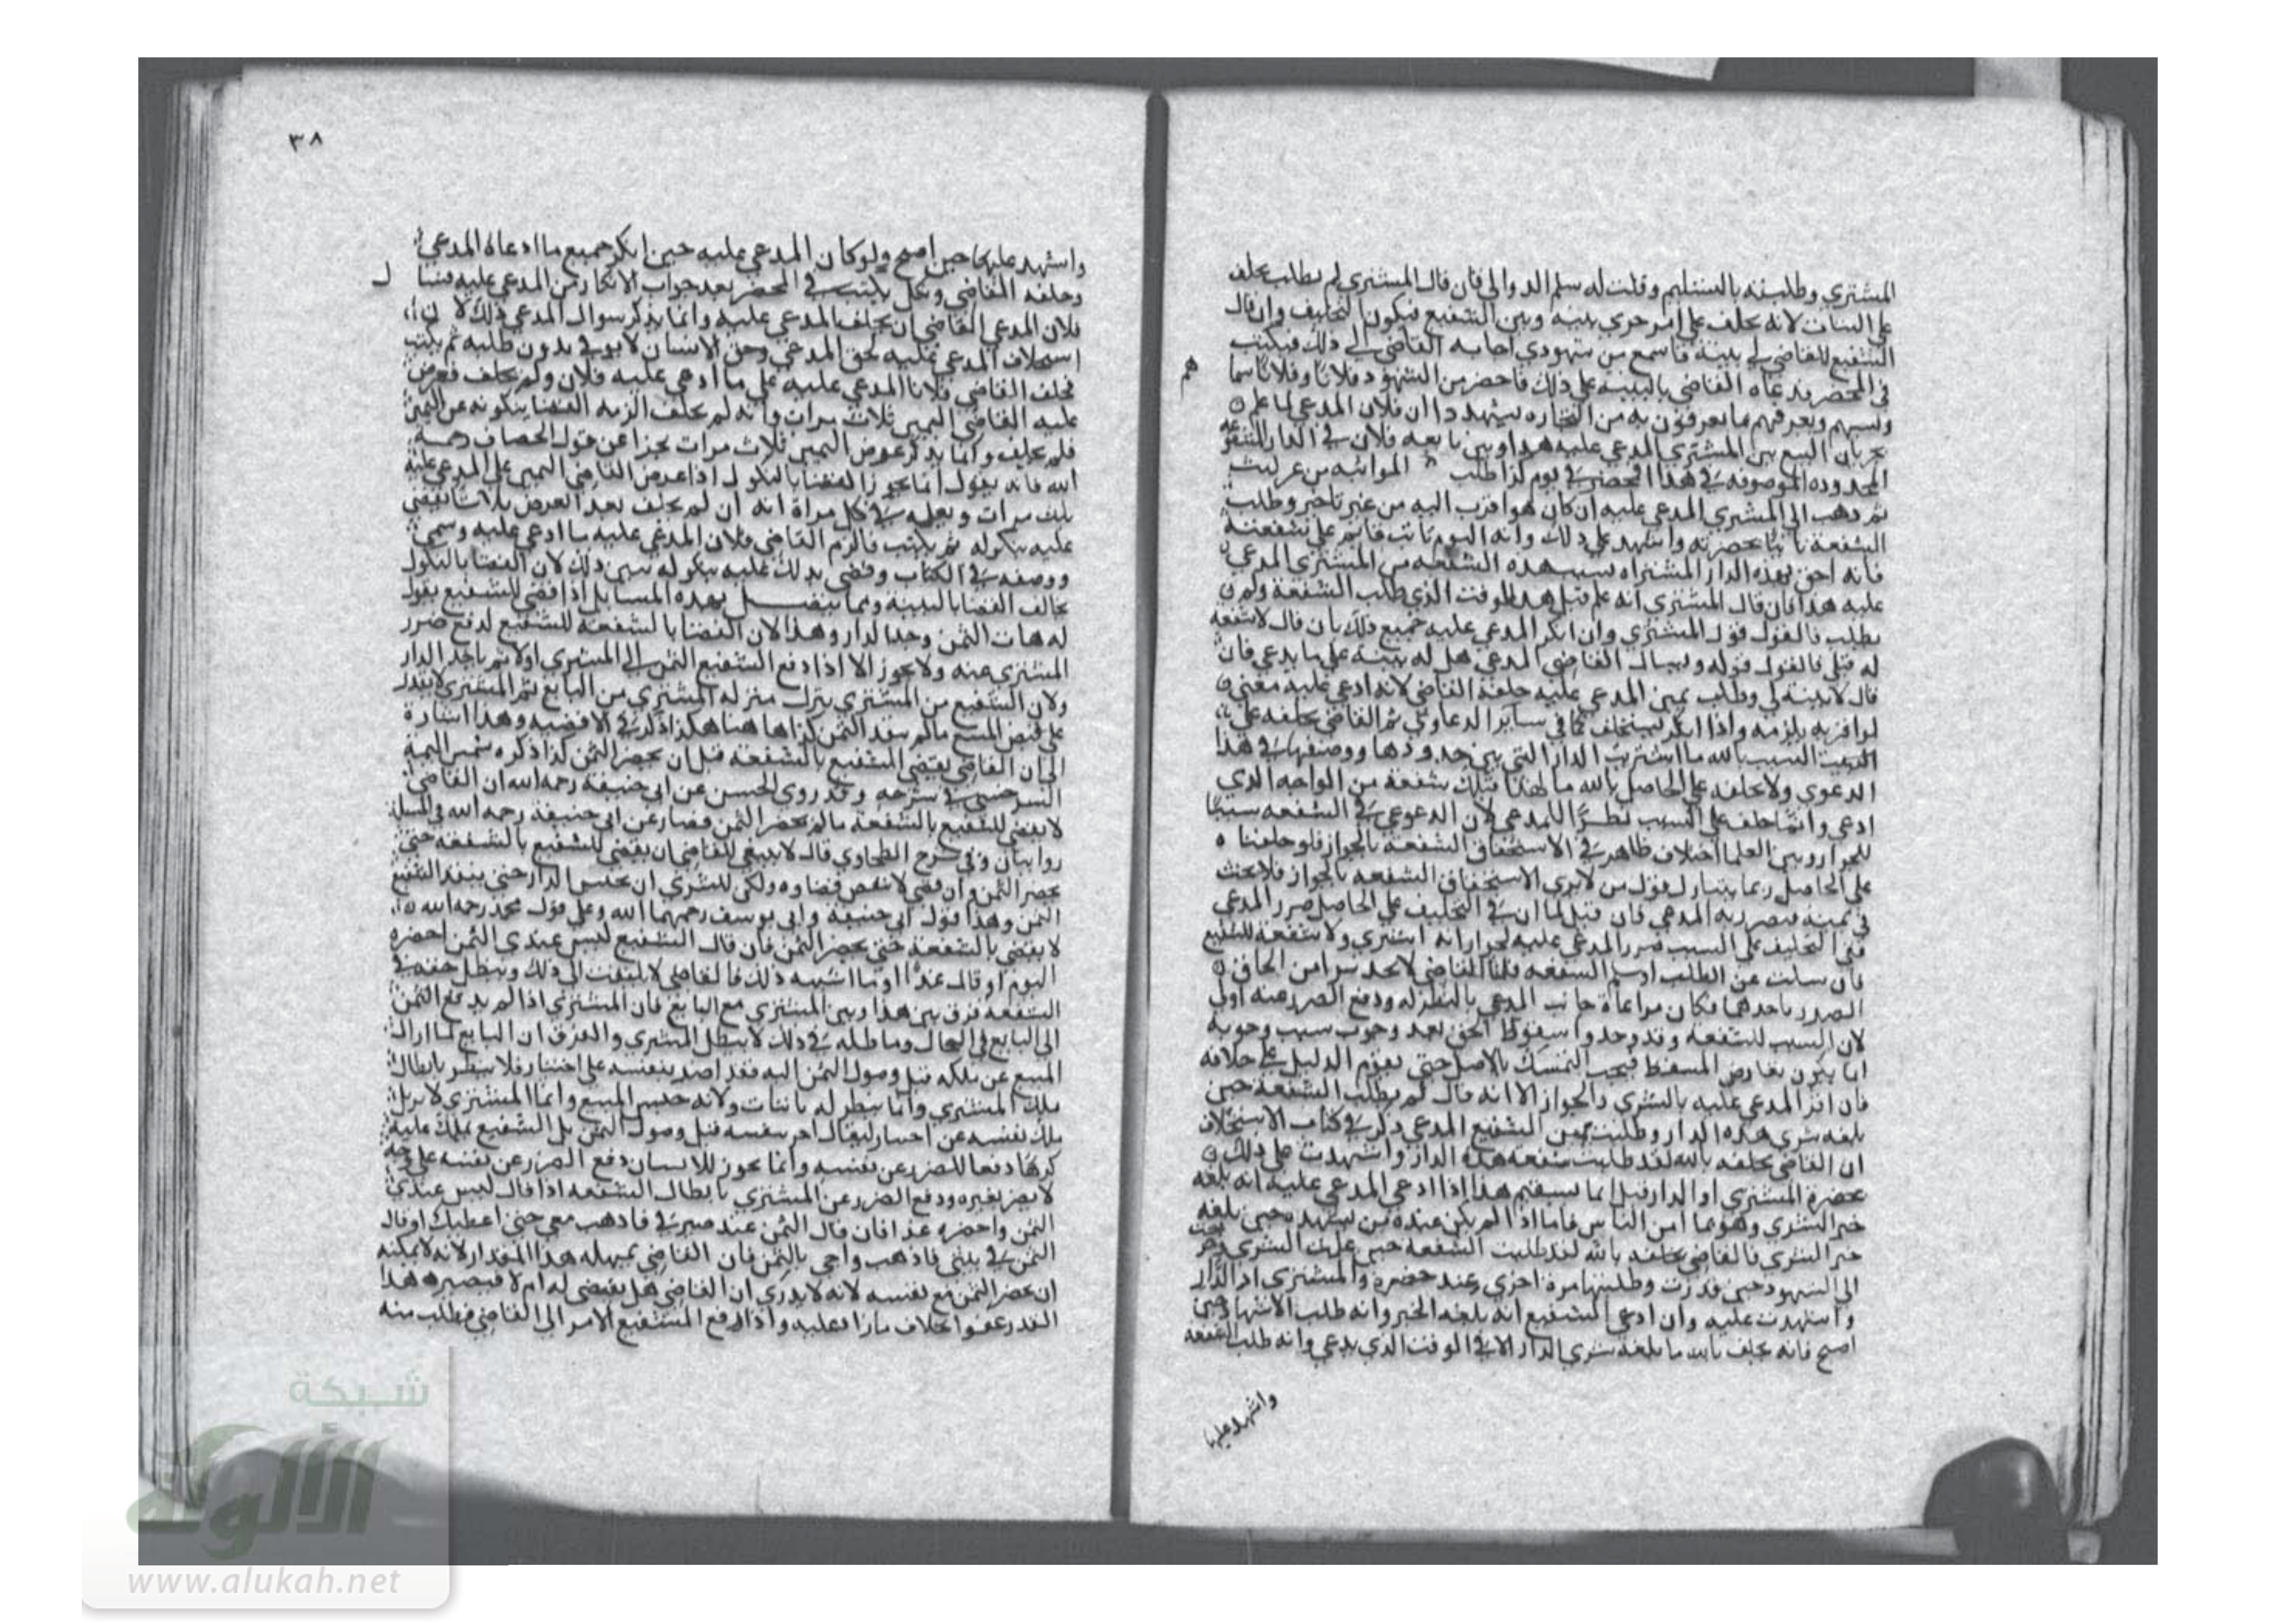 المشتري وطلبته بالتسليم وقلت له سلم الدار الي فان قال المشتري لم يطلب يحلف
على البتات لانه يحلف على امر جرى بينه وبين الشفيع فيكون التحليف وان قال
الشفيع للقاضي لي بينة فاسمع من شهودي اجابه القاضي الى ذلك فيكتب
في المحضر فدعاه القاضي بالبينة على ذلك فاحضر من الشهود فلانا وفلانا سما
هم
ونسبهم ويعرفهم ما يعرفون به من التجاره يشهدوا ان فلان المدعي لما علم
جريان البيع بين المشتري المدعي عليه هذا وبين بايعه فلان في الدار المشفوعه
المحدوده الموصوفه في هذا المحضر في يوم كذا طلب المواثبه من غير لبث
ثم ذهب الى المشتري المدعي عليه ان كان هو اقرب اليه من غير تاخير وطلب
الشفعة ثانيا بحضرته واشهد على ذلك وانه اليوم ثابت قايم على شفعته
فانه احق بهذه الدار المشتراه بسبب هذه الشفعه من المشتري المدعي
عليه هذا فان قال المشتري انه علم قبل هذا الوقت الذي طلب الشفعة ولم
يطلب فالقول قول المشتري وان انكر المدعي عليه جميع ذلك بان قال لا شفعه
له قبلي فالقول قوله ويسال القاضي المدعي هل له بينة على ما يدعي فان
قال لا بينة لي وطلب يمين المدعي عليه حلفه القاضي لانه ادعي عليه معنى
لو اقر به يلزمه واذا انكر يستحلف كما في ساير الدعاوي ثم القاضي يحلفه على
السبب بالله ما اشتريت الدار التي بين حدودها ووصفها في هذا
الدعوي ولا يحلفه على الحاصل بالله ما لهذا قبلك شفعة من الواجه الذي
ادعي وانما حلف على السبب نظرا للمدعي لان الدعوى في الشفعه سببها
للجوار وبين العلما اختلاف ظاهر في الاستحقاق الشفعة بالجواز فلو حلفنا
على الحاصل ربما يتناول قول من لا يري الاستحقاق الشفعه بالجواز فلا يحنث
في يمينه فيتضرر به المدعي فان قيل لما ان في التحليف على الحاصل ضرر المدعي
ففي التحليف على السبب ضرر المدعي عليه لجواز انه اشتري ولا شفعة للشفيع
فان سكت عن الطلب او سلم الشفعه قلنا القاضي لا يجد بدا من الحاق
الضرر باحدهما فكان مراعاة جانب المدعي بالنظر له ودفع الضرر عنه اولى
لان السبب للشفعه وقد وجد واسقوط الحق بعد وجوب سبب وجوبه
انما يكون بعارض المسقط فيجب التمسك بالاصل حتى يقوم الدليل على خلافه
فان اقر المدعي عليه بالشري والجواز الا انه قال لم يطلب الشفعة حين
بلغه شري هذه الدار وطلبت يمين الشفيع المدعي ذكر في كتاب الاستحلاف
ان القاضي يحلفه بالله لقد طلبت شفعة هذه الدار واشهدت على ذلك
بحضرة المشتري او الدار قيل انما يستقيم هذا اذا ادعي المدعي عليه انه بلغه
خبر الشري وهو بملا من الناس فاما اذا لم يكن عنده من يشهد حين بلغه
خبر الشري فالقاضي يحلفه بالله لقد طلبت الشفعة حين علمت الشري
الى الشهود حين قدرت وطلبتها مرة اخري وعند حضرة المشتري او الدار
واشهدت عليه وان ادعى الشفيع انه بلغه الخبر وانه طلب الاشهاد حين
اصبح فانه يحلف بالله ما بلغه شري الدار الا في الوقت الذي يدعي وانه طلب الشفعه
واشهد عليها
٣٨
واشهد عليها حين اصبح ولو كان المدعي عليه حين انكر جميع ما ادعاه المدعي
وحلفه القاضي ونكل يكتب في المحضر بعد جواب الانكار من المدعي عليه فسا
ل
فلان المدعي القاضي ان يحلف المدعي عليه وانما يذكر سوال المدعي ذلك لان
استحلاف المدعي عليه لحق المدعي وحق الانسان لا يوفى بدون طلبه ثم يكتب
فحلف القاضي فلانا المدعي عليه على ما ادعي عليه فلان ولم يحلف فعرض
عليه القاضي اليمين ثلاث مرات وانه لم يحلف الزمه القضا بنكوله عن اليمين
فلم يحلف وانما يذكر عرض اليمين ثلاث مرات تحرزا عن قول الخصاف رحمه
الله فانه يقول انما يجوز القضا بالنكول اذا عرض القاضي اليمين على المدعي عليه
ثلث مرات ويعلمه في كل مراة انه ان لم يحلف بعد العرض ثلاثا يقضي
عليه بنكوله ثم يكتب فالزم القاضي فلان المدعي عليه ما ادعي عليه وسمي
ووصفه في الكتاب وقضى بذلك عليه بنكوله يبين ذلك لان القضا بالنكول
يخالف القضا بالبينه ومما يتصل بهذه المسايل اذا قضي للشفيع يقول
له هات الثمن وخذ الدار وهذا لان القضا بالشفعة للشفيع لدفع ضرر
المشتري عنه ولا يجوز الا اذا دفع الشفيع الثمن الى المشتري اولا ثم ياخذ الدار
ولان الشفيع من المشتري ينزل منزله المشتري من البايع ثم المشتري لا يقدر
على قبض المبيع ما لم ينقد الثمن كذا هاهنا هكذا ذكر في الاقضيه وهذا اشارة
الى ان القاضي يقضي للشفيع بالشفعه قبل ان يحضر الثمن كذا ذكره شمس اليمة
السرخسي في شرحه وقد روي الحسن عن ابى حنيفة رحمه الله ان القاضي
لا يقضي للشفيع بالشفعة ما لم يحضر الثمن فصار عن ابى حنيفة رحمه الله في المسئلة
روايتان وفي شرح الطحاوي قال لا ينبغي للقاضي ان يقضي للشفيع بالشفعه حتى
يحضر الثمن وان قضي لا ينقض قضاوه ولكن للمشتري ان يحبس الدار حتى ينقد الشفيع
الثمن وهذا قول ابى حنيفة وابى يوسف رحمهما الله وعلى قول محمد رحمه الله
لا يقضي بالشفعة حتى يحضر الثمن فان قال الشفيع ليس عندي الثمن احضره
اليوم او قال غدا او ما اشبه ذلك فالقاضي لا يلتفت الى ذلك ويبطل حقه في
الشفعه فرق بين هذا وبين المشتري مع البايع فان المشتري اذا لم يدفع الثمن
الى البايع في الحال وماطله في ذلك لا يبطل المشتري والفرق ان البايع لما ازال
المبيع عن ملكه قبل وصول الثمن اليه فقد اضر بنفسه على اختيار فلا ينظر بابطال
ملك المشتري وانما ينظر له باثبات ولاية حبس المبيع واما المشتري لا يزيل
ملك نفسه عن اختيار ليقال اضر بنفسه قبل وصول الثمن بل الشفيع يملك عليه
كرها دفعا للضرر عن نفسه وانما يجوز للانسان دفع الضرر عن نفسه على وجه
لا يضر بغيره ودفع الضرر عن المشتري بابطال الشفعه اذا قال ليس عندي
الثمن واحضره غدا فان قال الثمن عند صيرفي فاذهب معي حتى اعطيك او قال
الثمن في بيتي فاذهب واجي بالثمن فان القاضي يمهله هذا المقدار لانه لا يمكنه
ان يحضر الثمن مع نفسه لانه لا يدري ان القاضي هل يقضي له ام لا فيصير هذا
القدر عفوا بخلاف ما زاد عليه واذا رفع الشفيع الامر الى القاضي وطلب منه
شبكة
الألوكة
www.alukah.net